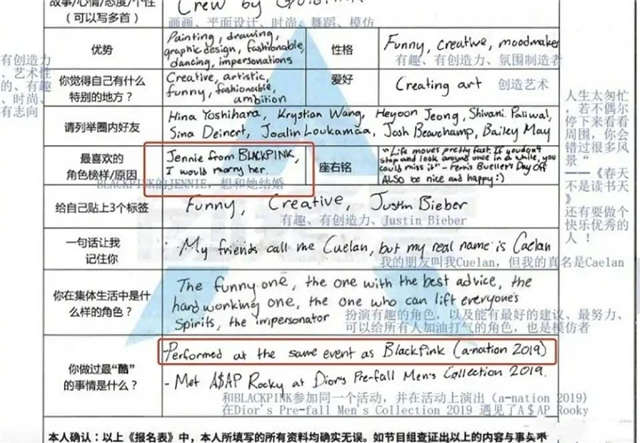 故事/心情/态度/个性
(可以写多首)
Crew by Goldlink
画画、平面设计、时尚、舞蹈、模仿
优势
Painting, drawing,
graphic design, fashionable,
dancing, impersonations
性格
Funny, creative, moodmaker
有趣、有创造力、氛围制造者
有创造力
、艺术性
的、有趣
、时尚、
有志向
你觉得自己有什么
特别的地方？
Creative, artistic,
funny, fashionable,
ambition
爱好
Creating art
创造艺术
请列举圈内好友
Hina Yoshihara, Krystian Wang, Heyoon Jeong, Shivani Paliwal,
Sina Deinert, Joalin Loukamaa, Josh Beauchamp, Bailey May
最喜欢的
角色榜样/原因
Jennie from BLACKPINK,
I would marry her.
BLACKPINK的JENNIE，想和她结婚
座右铭
"Life moves pretty fast. If you don't
stop and look around once in a while, you
could miss it" - Ferris Bueller's Day Off
ALSO be nice and happy :)
人生太匆忙
，若不偶尔
停下来看看
周围，你会
错过很多风
景"
——《春天
不是读书天
》
还有要做个
快乐优秀的
人！
给自己贴上3个标签
Funny, Creative, Justin Bieber
有趣、有创造力、Justin Bieber
一句话让我
记住你
My friends call me Cuelan, but my real name is Caelan
我的朋友叫我Cuelan，但我的真名是Caelan
你在集体生活中是什
么样的角色？
The funny one, the one with the best advice, the
hard working one, the one who can lift everyone's
Spirits, the impersonator
扮演有趣的角色，以及能有最好的建议、最努力、
可以给所有人加油打气的角色，也是模仿者
你做过最“酷”
的事情是什么？
Performed at the same event as BlackPink (a-nation 2019)
- Met A$AP Rocky at Dior's Pre-fall Men's Collection 2019.
和BLACKPINK参加同一个活动，并在活动上演出 (a-nation 2019)
在Dior's Pre-fall Men's Collection 2019 遇见了A$AP Rooky
本人确认：以上《报名表》中，本人所填写的所有资料均确实无误。如节目组查证出以上的内容与事实不